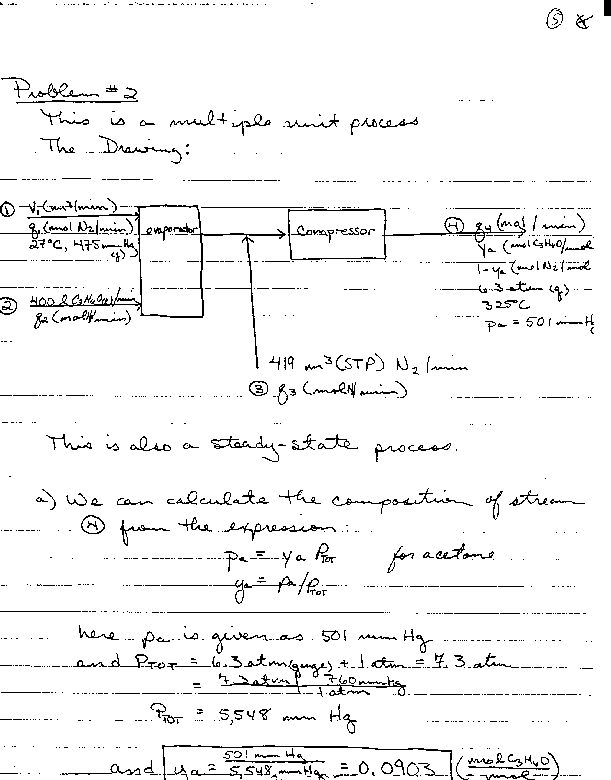 ⑤
Problem # 2
This is a multiple unit process
The Drawing:
① V₁ (m³/min)
q₁ (mol N₂/min)
27°C, 475 mm Hg
(g)
evaporator
compressor
④ q₄ (mol / min)
ya (mol C₃H₆O/mol
1-ya (mol N₂/mol
6.3 atm (g)
325°C
pa = 501 mm H
② 400 l C₃H₆O(l)/min
q₂ (mol/min)
419 m³ (STP) N₂ / min
③ q₃ (mol/min)
This is also a steady-state process.
a) We can calculate the composition of stream
④ from the expression:
pa = ya P_TOT for acetone
ya = pa/P_TOT
here pa is given as 501 mm Hg
and P_TOT = 6.3 atm (guge) + 1 atm = 7.3 atm
= 7.3 atm | 760 mm Hg
1 atm
P_TOT = 5,548 mm Hg
and ya = 501 mm Hg / 5,548 mm Hg = 0.0903 (mol C₃H₆O / mol)